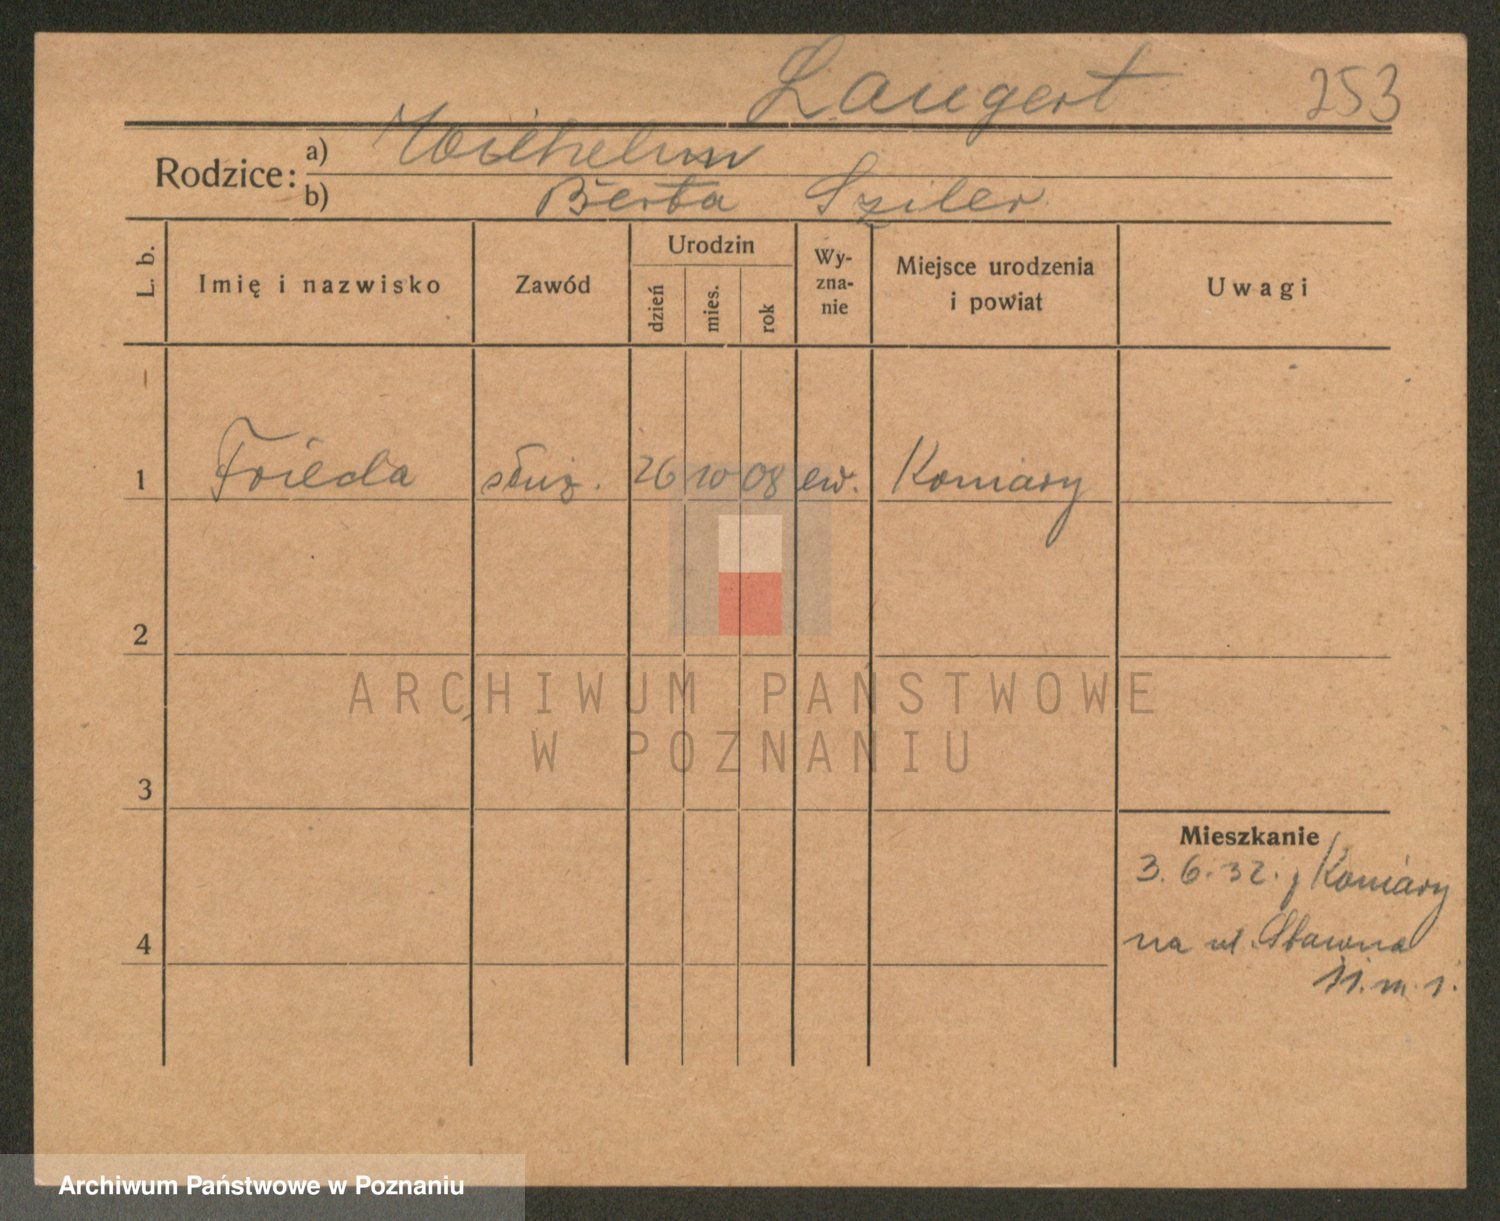 Langert 253
Rodzice: a) Wilhelm
b) Berta Sziler
L. b. Imię i nazwisko Zawód Urodzin dzień mies. rok Wy-zna-nie Miejsce urodzenia i powiat Uwagi
1 Frieda służ. 26 10 08 ew. Komiary
2
3
4
Mieszkanie
3. 6. 32. j Komiary
na ul. Sławna
ARCHIWUM PAŃSTWOWE
W POZNANIU
Archiwum Państwowe w Poznaniu